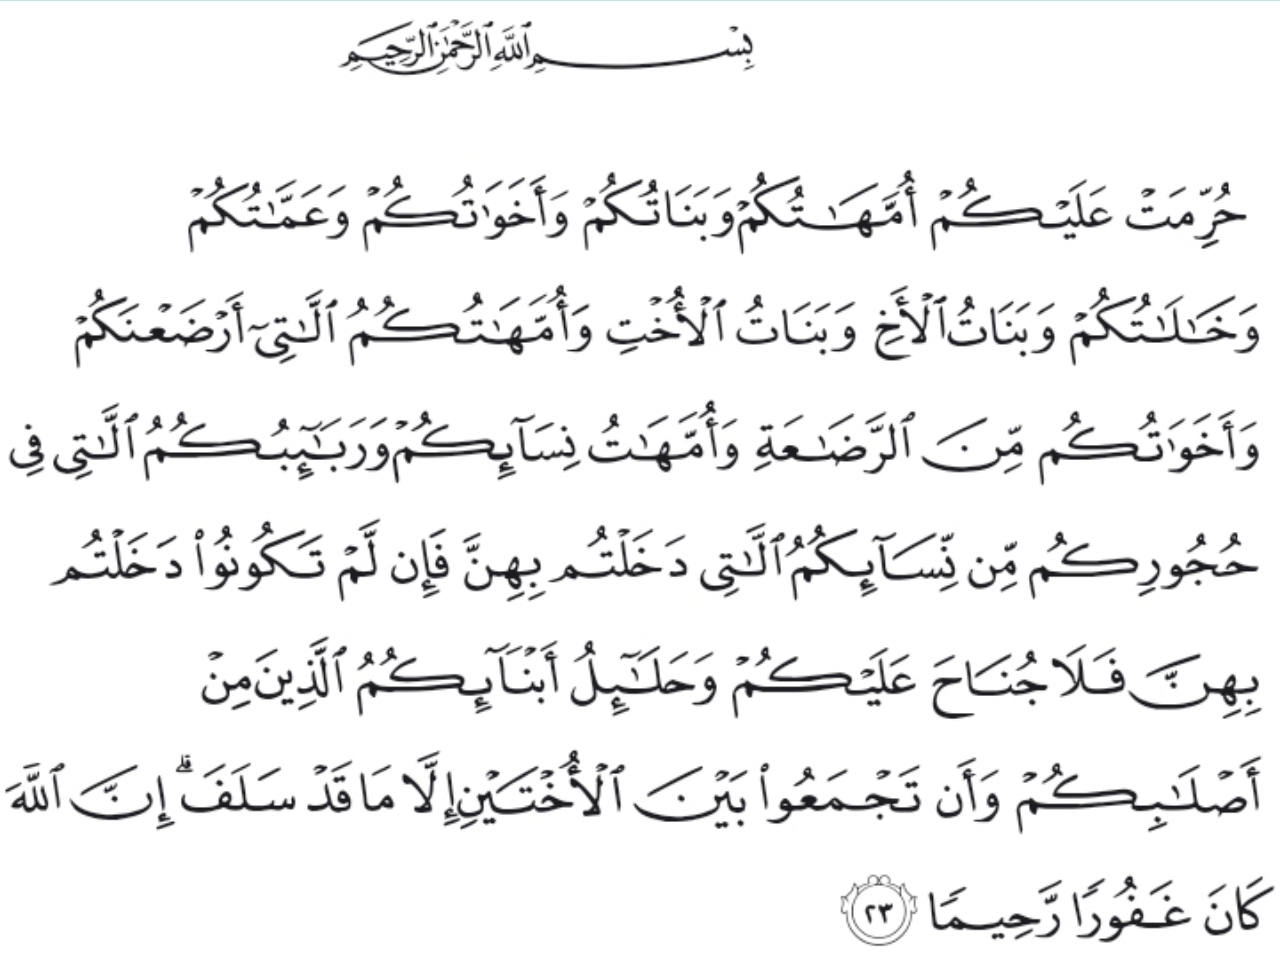 بِسْمِ ٱللَّهِ ٱلرَّحْمَٰنِ ٱلرَّحِيمِ
حُرِّمَتْ عَلَيْكُمْ أُمَّهَٰتُكُمْ وَبَنَاتُكُمْ وَأَخَوَٰتُكُمْ وَعَمَّٰتُكُمْ
وَخَٰلَٰتُكُمْ وَبَنَاتُ ٱلْأَخِ وَبَنَاتُ ٱلْأُخْتِ وَأُمَّهَٰتُكُمُ ٱلَّٰتِىٓ أَرْضَعْنَكُمْ
وَأَخَوَٰتُكُم مِّنَ ٱلرَّضَٰعَةِ وَأُمَّهَٰتُ نِسَآئِكُمْ وَرَبَٰٓئِبُكُمُ ٱلَّٰتِى فِى
حُجُورِكُم مِّن نِّسَآئِكُمُ ٱلَّٰتِى دَخَلْتُم بِهِنَّ فَإِن لَّمْ تَكُونُوا۟ دَخَلْتُم
بِهِنَّ فَلَا جُنَاحَ عَلَيْكُمْ وَحَلَٰٓئِلُ أَبْنَآئِكُمُ ٱلَّذِينَ مِنْ
أَصْلَٰبِكُمْ وَأَن تَجْمَعُوا۟ بَيْنَ ٱلْأُخْتَيْنِ إِلَّا مَا قَدْ سَلَفَ ۗ إِنَّ ٱللَّهَ
كَانَ غَفُورًا رَّحِيمًا ٢٣